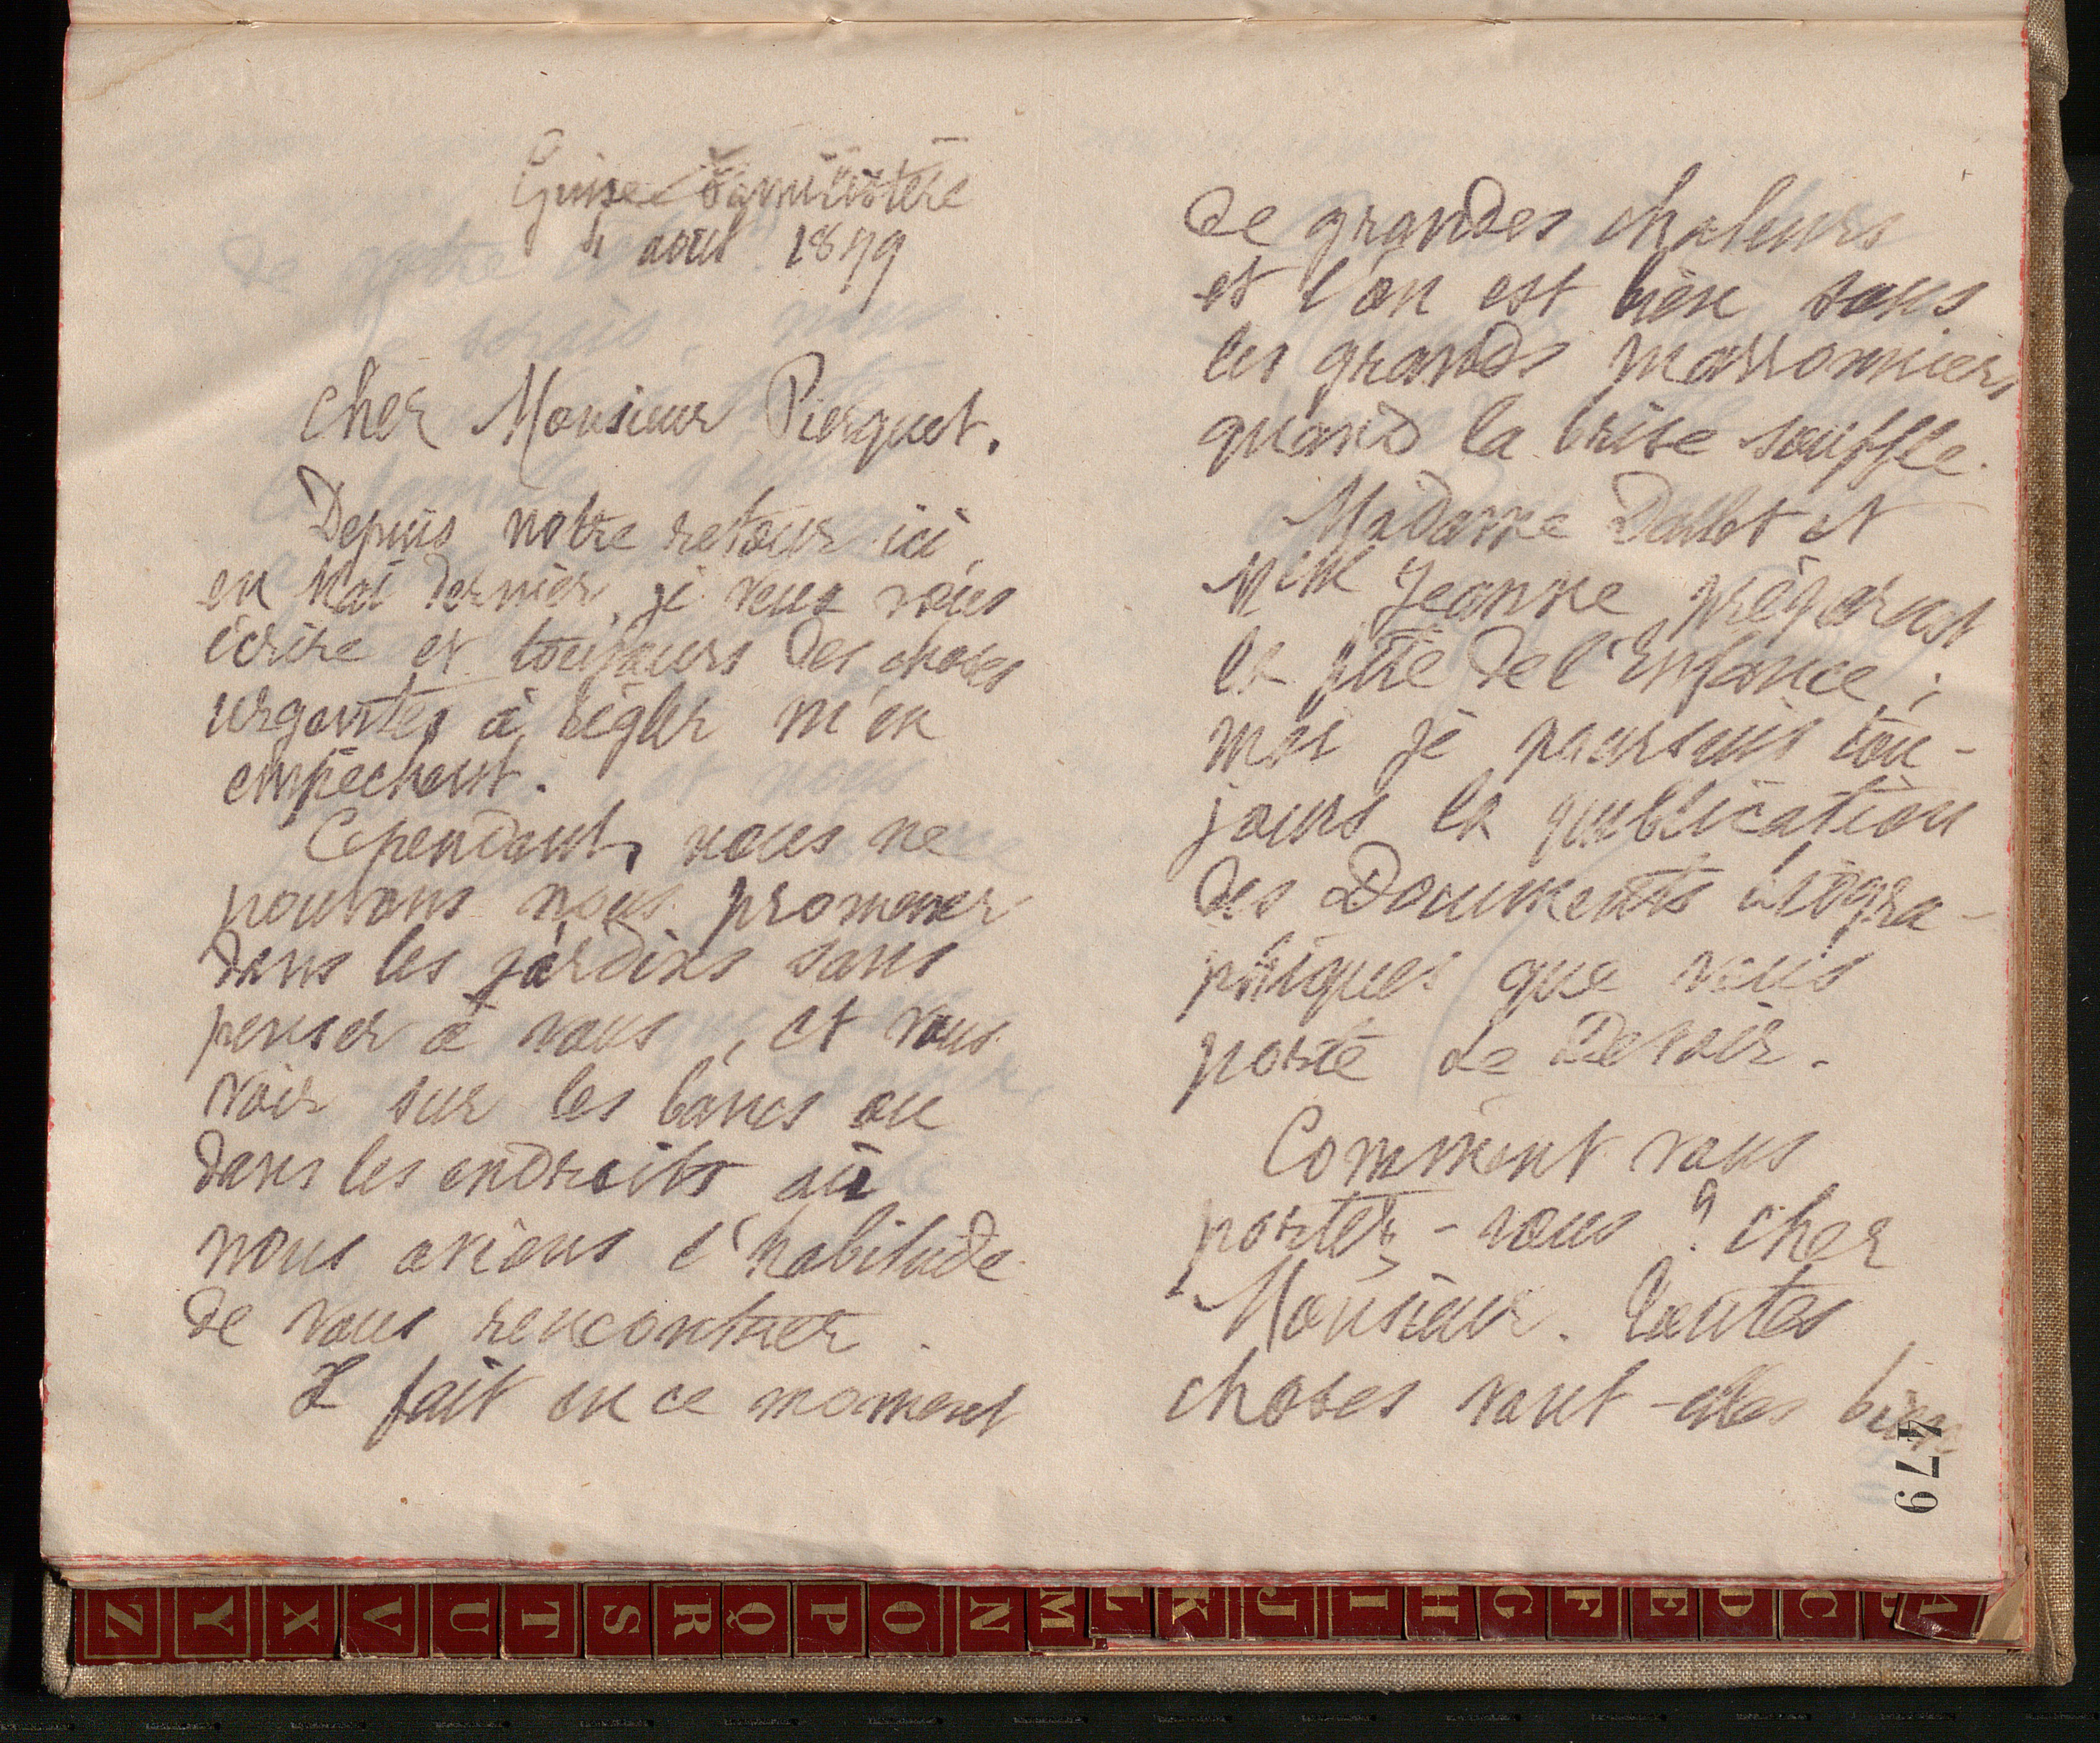 Guise Familistère
4 août 1899
Cher Monsieur Pierquet.
Depuis notre retour ici
en Mai dernier, je veux vous
écrire et toujours des choses
urgentes à régler m'en
empêchent.
Cependant, nous ne
pouvons nous promener
dans les jardins sans
penser à vous, et vous
voir sur les bancs ou
dans les endroits où
nous avions l'habitude
de vous rencontrer.
Il fait en ce moment
de grandes chaleurs
et l'on est bien sous
les grands marronniers
quand la brise souffle.
Madame Dallet et
Melle Jeanne préparent
la fête de l'Enfance ;
moi je poursuis tou-
jours la publication
des Documents biogra-
phiques que vous
porte Le Devoir.
Comment vous
portez-vous ? cher
Monsieur. Toutes
choses vont-elles bien
479
Z Y X V U T S R Q P O N M L K J I H G F E D C B A